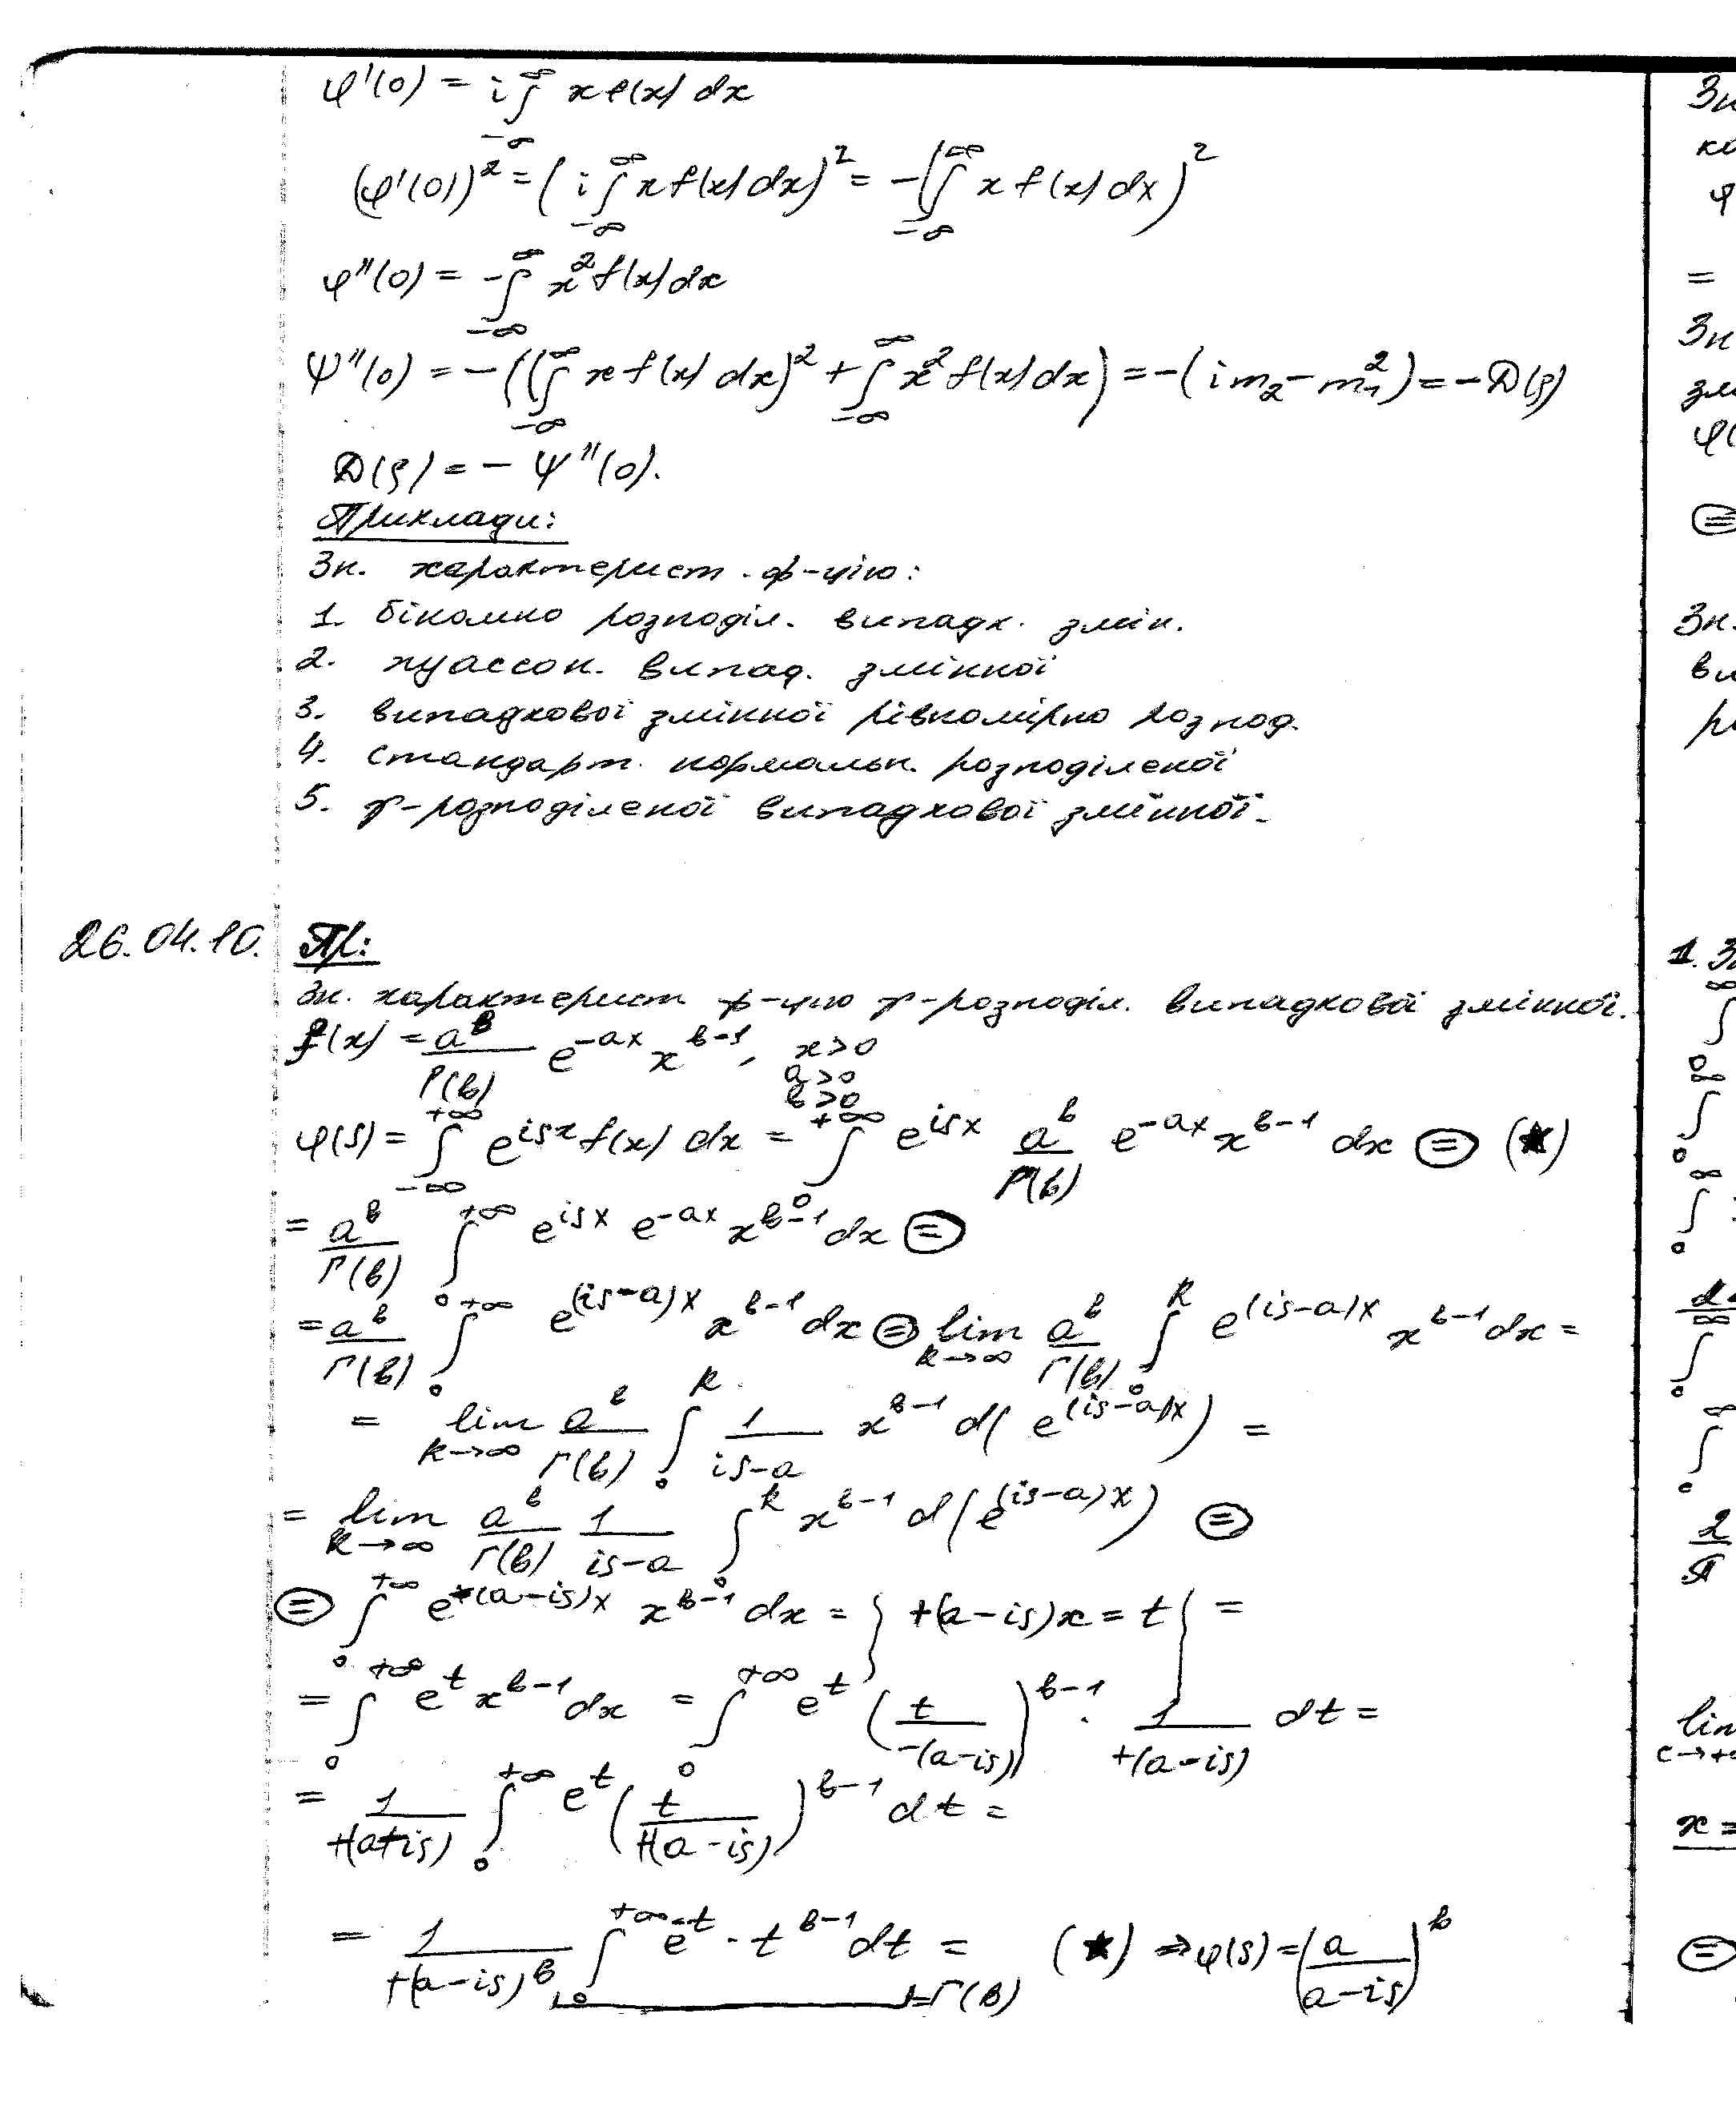 φ'(0) = i∫_{-∞}^{∞} x f(x) dx
(φ'(0))² = (i∫_{-∞}^{∞} x f(x) dx)² = -(∫_{-∞}^{∞} x f(x) dx)²
φ''(0) = -∫_{-∞}^{∞} x² f(x) dx
Ψ''(0) = -((∫_{-∞}^{∞} x f(x) dx)² + ∫_{-∞}^{∞} x² f(x) dx) = -(i m₂ - m₁²) = -D(ξ)
D(ξ) = - Ψ''(0).
Приклади:
Зн. характерист. ф-цію:
1. біномно розподіл. випадк. змін.
2. пуассон. випад. змінної
3. випадкової змінної рівномірно розпод.
4. стандарт. нормальн. розподіленої
5. γ-розподіленої випадкової змінної.
26.04.10. Пр:
Зн. характерист ф-цію γ-розподіл. випадкової змінної.
f(x) = a^b/Γ(b) e^{-ax} x^{b-1}, x>0
a>0
b>0
φ(s) = ∫_{-∞}^{+∞} e^{isx} f(x) dx = ∫_{0}^{+∞} e^{isx} a^b/Γ(b) e^{-ax} x^{b-1} dx ⊜ (★)
= a^b/Γ(b) ∫_{0}^{+∞} e^{isx} e^{-ax} x^{b-1} dx ⊜
= a^b/Γ(b) ∫_{0}^{+∞} e^{(is-a)x} x^{b-1} dx ⊜ lim_{k→∞} a^b/Γ(b) ∫_{0}^{k} e^{(is-a)x} x^{b-1} dx =
= lim_{k→∞} a^b/Γ(b) ∫_{0}^{k} 1/(is-a) x^{b-1} d(e^{(is-a)x}) =
= lim_{k→∞} a^b/Γ(b) 1/(is-a) ∫_{0}^{k} x^{b-1} d(e^{(is-a)x}) ⊜
⊜ ∫_{0}^{+∞} e^{+(a-is)x} x^{b-1} dx = } +(a-is)x = t { =
= ∫_{0}^{+∞} e^t x^{b-1} dx = ∫_{0}^{+∞} e^t (t/(-(a-is)))^{b-1} · 1/(+(a-is)) dt =
= 1/(+(a+is)) ∫_{0}^{+∞} e^t (t/(+(a-is)))^{b-1} dt =
= 1/(+(a-is)^b) ∫_{0}^{+∞} e^{-t} · t^{b-1} dt = (★) ⇒ φ(s) = (a/(a-is))^b
=Γ(b)
Зн
φ
=
Зн
φ(
⊜
Зн.
1. Зн
∫_{0}^{∞}
∫_{0}^{∞}
∫_{0}^{∞}
∫_{0}^{∞}
∫_{0}^{∞}
2/π
lim
c→+∞
x =
⊜